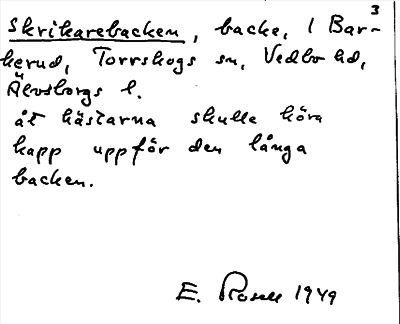 3
Skrikarebacken, backe, i Bar-
kerud, Torrskogs sn, Vedbo hd,
Älvsborgs l.
åt hästarna skulle köra
kapp uppför den långa
backen.
E. Rosell 1949